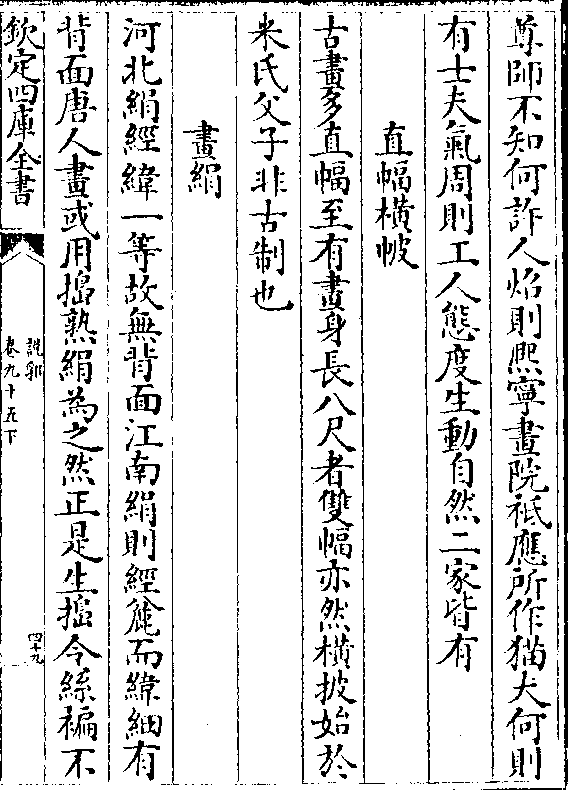 尊師不知何許人焰則熈寧畫院祗應所作猫犬何則
有士夫氣周則工人態度生動自然二家皆有
直幅横帔
古畫多直幅至有畫身長八尺者雙幅亦然横披始於
米氏父子非古制也
畫絹
河北絹經緯一等故無背面江南絹則經麄而緯細有
背面唐人畫或用搗熟絹為之然正是生搗令絲褊不
欽定四庫全書
說郛
卷九十五下
四十九